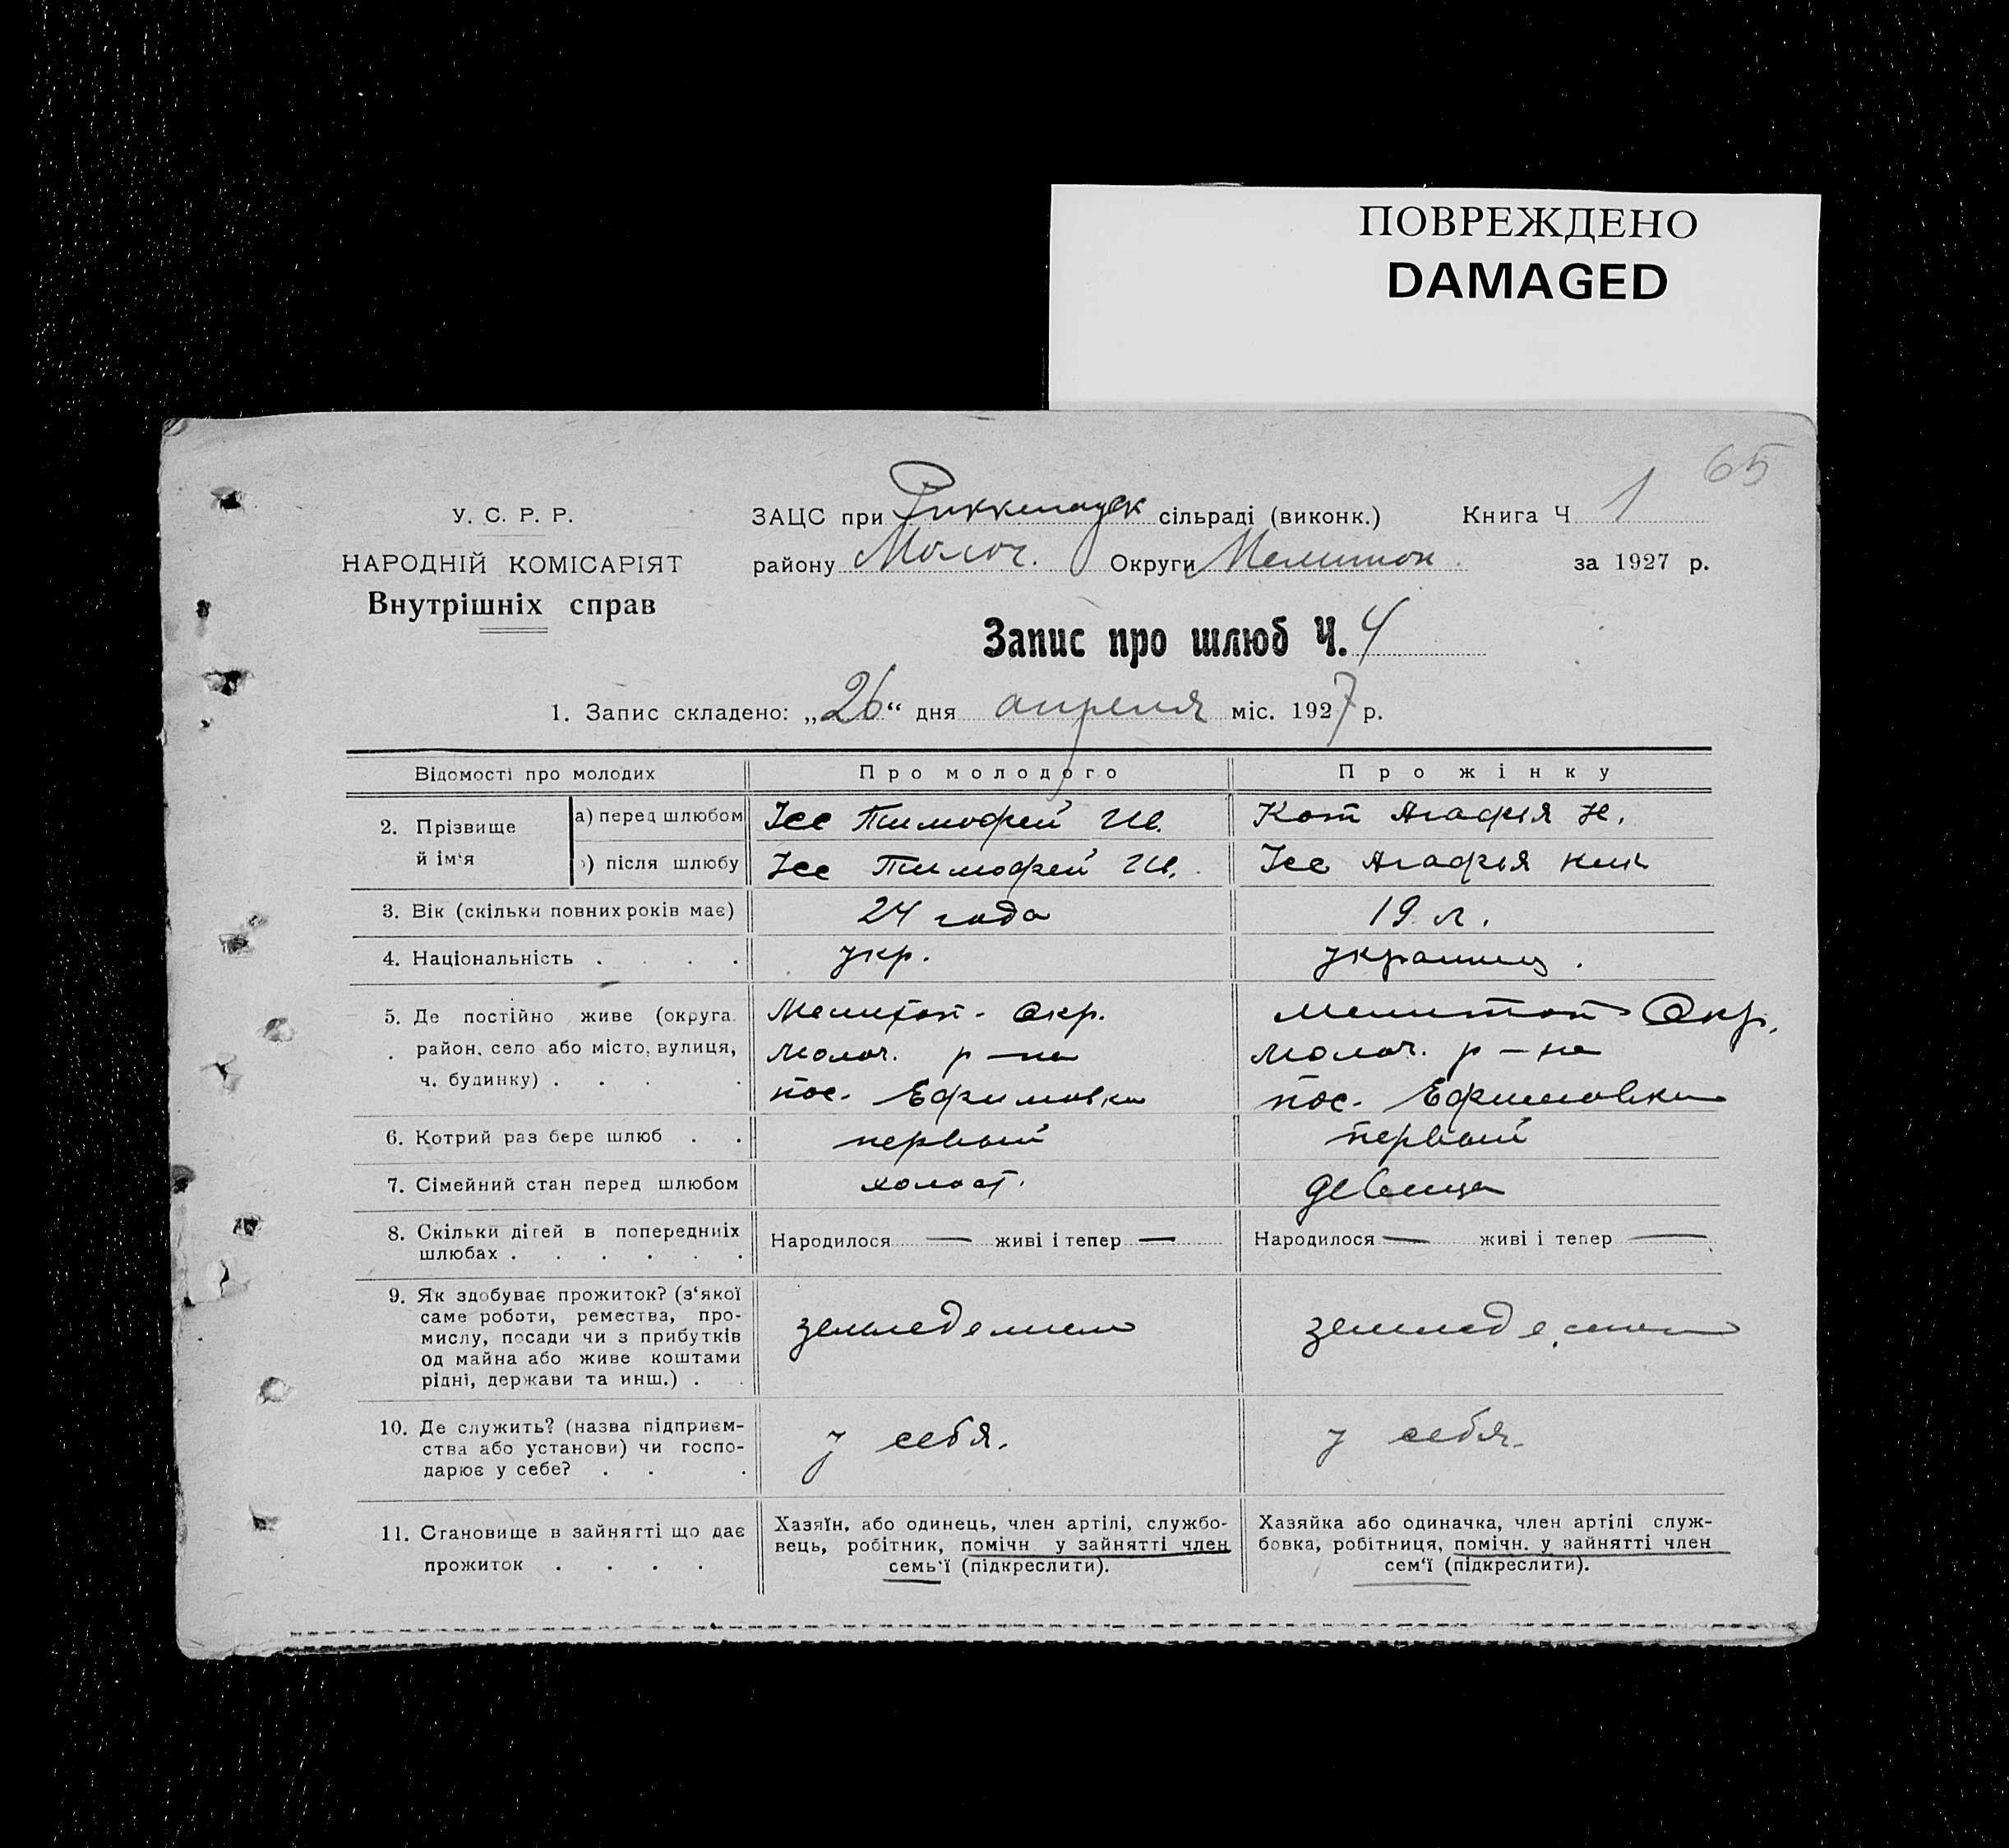 ПОВРЕЖДЕНО
DAMAGED
65
У. С. Р. Р.
НАРОДНІЙ КОМІСАРІЯТ
Внутрішніх справ
ЗАЦС при Риккенауск сільраді (виконк.) Книга Ч 1
району Молоч. Округи Мелитоп. за 1927 р.
Запис про шлюб Ч. 4
1. Запис складено: „26“ дня апреля міс. 1927 р.
Відомості про молодих Про молодого Про жінку
2. Прізвище й ім'я
а) перед шлюбом Тимофей Ив. Кот Агафія Н.
б) після шлюбу Тимофей Ив. Агафія Ник
3. Вік (скільки повних років має) 24 года 19 л.
4. Національність . . . . укр. украинц.
5. Де постійно живе (округа, район, село або місто, вулиця, ч. будинку) . . . .
Мелитоп. Окр. Мелитоп Окр.
Молоч. р-на Молоч. р-на
пос. Ефимовка пос. Ефимовка
6. Котрий раз бере шлюб . . первый первый
7. Сімейний стан перед шлюбом холост. девица
8. Скільки дітей в попередніх шлюбах . . . . . .
Народилося — живі і тепер — Народилося — живі і тепер —
9. Як здобуває прожиток? (з'якої
саме роботи, ремества, про-
мислу, посади чи з прибутків
од майна або живе коштами
рідні, держави та инш.) . .
земледелием земледелием
10. Де служить? (назва підприєм-
ства або установи) чи госпо-
дарює у себе? . . .
у себя. у себя.
11. Становище в зайнятті що дає
прожиток . . . .
Хазяїн, або одинець, член артілі, службо-
вець, робітник, помічн у зайнятті член
семь'ї (підкреслити).
Хазяйка або одиначка, член артілі служ-
бовка, робітниця, помічн. у зайнятті член
сем'ї (підкреслити).